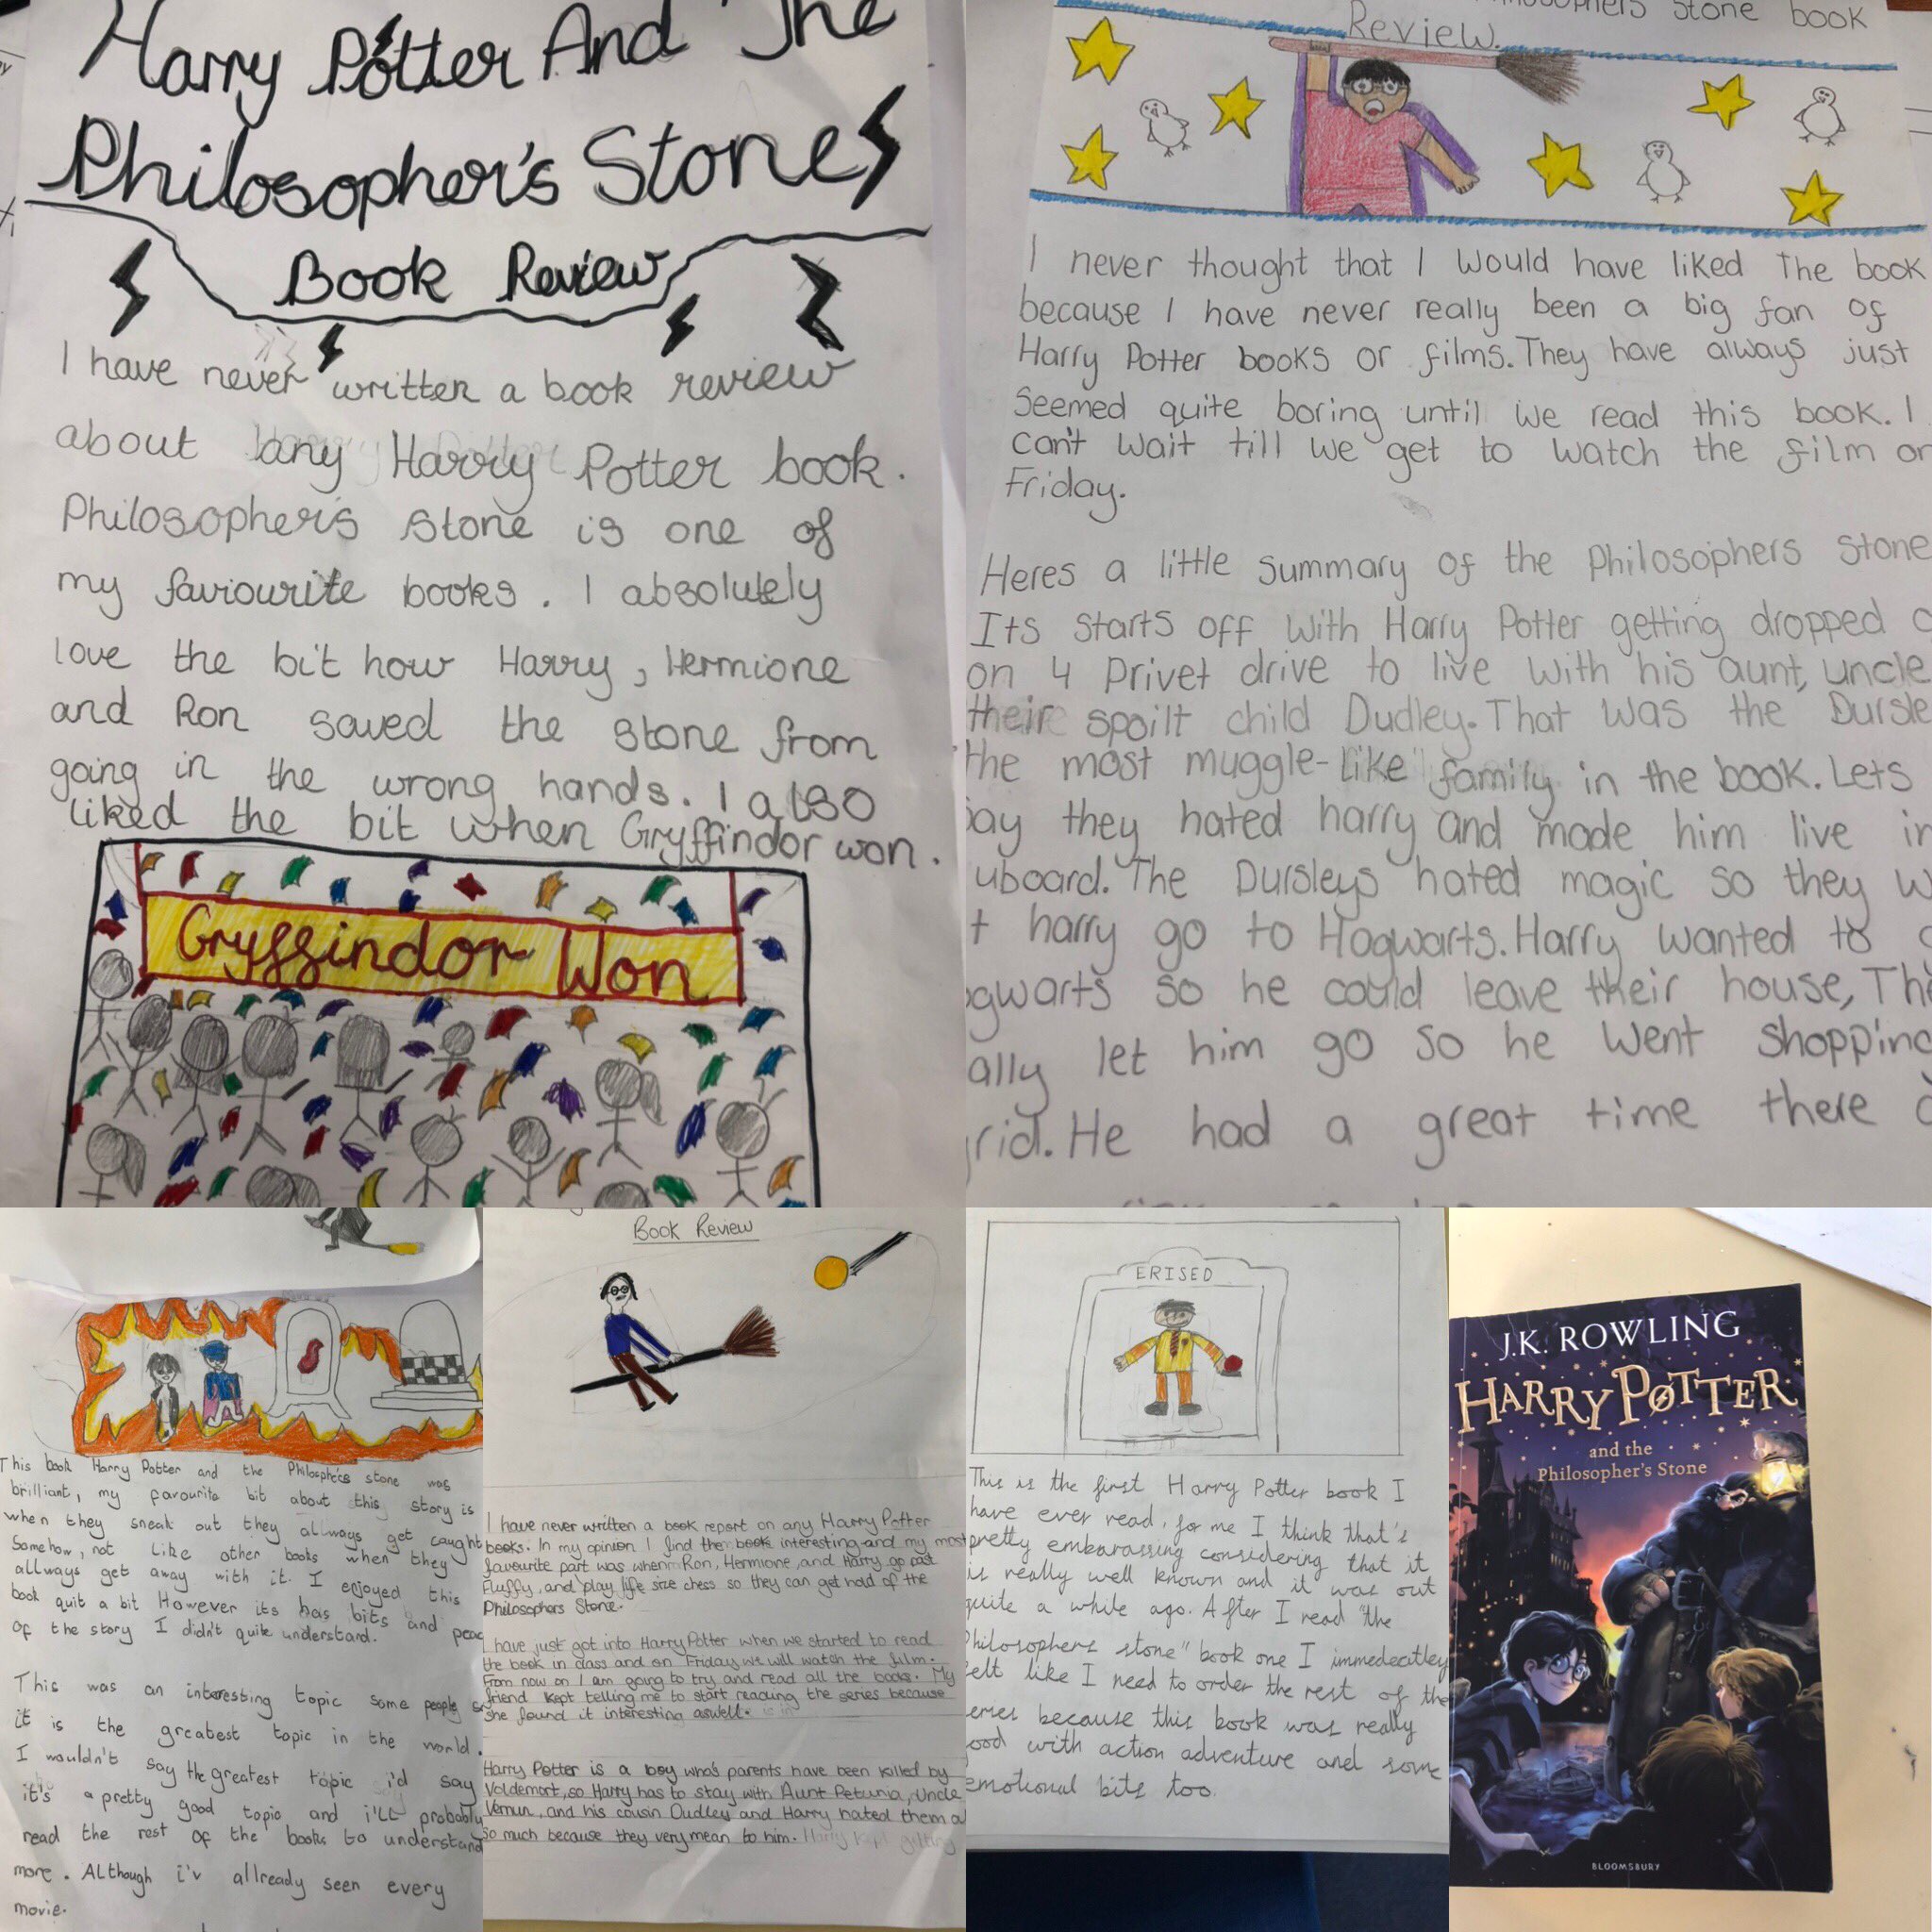 Harry Potter And The
Philosopher's Stone
Book Review
I have never written a book review
about any Harry Potter book.
Philosopher's Stone is one of
my faviourite books. I absolutely
love the bit how Harry, Hermione
and Ron saved the stone from
going in the wrong hands. I also
liked the bit when Gryffindor won.
Gryffindor Won
Stone book
Review.
I never thought that I would have liked The book
because I have never really been a big fan of
Harry Potter books or films. They have always just
Seemed quite boring until we read this book. I
can't wait till we get to watch the film on
Friday.
Heres a little summary of the Philosophers stone
Its starts off with Harry Potter getting dropped
on 4 Privet drive to live with his aunt, uncle
their spoilt child Dudley. That was the Dursle
the most muggle-like family in the book. Lets
say they hated harry and made him live in
uboard. The Dursleys hated magic so they w
t harry go to Hogwarts. Harry wanted to
ogwarts so he could leave their house, The
ally let him go so he went shopping
grid. He had a great time there
This book Harry Potter and the Philosphers stone was
brilliant, my favourite bit about this story is
when they sneak out they allways get caught
Somehow, not like other books when they
allways get away with it. I enjoyed this
book quit a bit However its has bits and peac
of the story I didn't quite understand.
This was an interesting topic some people s
it is the greatest topic in the world.
I wouldn't say the greatest topic i'd say
it's a pretty good topic and i'll probably
read the rest of the books to understand
more. Although i'v allready seen every
movie.
Book Review
I have never written a book report on any Harry Potter
books. In my opinion I find the book interesting and my most
favourite part was when Ron, Hermione, and Harry go past
Fluffy, and play life size chess so they can get hold of the
Philosophers Stone.
I have just got into Harry Potter when we started to read
the book in class and on Friday we will watch the film.
From now on I am going to try and read all the books. My
friend kept telling me to start reading the series because
she found it interesting aswell.
Harry Potter is a boy who's parents have been killed by
Voldemort, so Harry has to stay with Aunt Petunia, Uncle
Vernun, and his cousin Dudley and Harry hated them
so much because they very mean to him. Harry kept getting
ERISED
This is the first Harry Potter book I
have ever read, for me I think that's
pretty embarassing considering that it
is really well known and it was out
quite a while ago. After I read "the
Philosophers stone" book one I immedeitley
felt like I need to order the rest of the
eries because this book was really
ood with action adventure and some
emotional bits too.
J.K. ROWLING
HARRY POTTER
and the
Philosopher's Stone
BLOOMSBURY